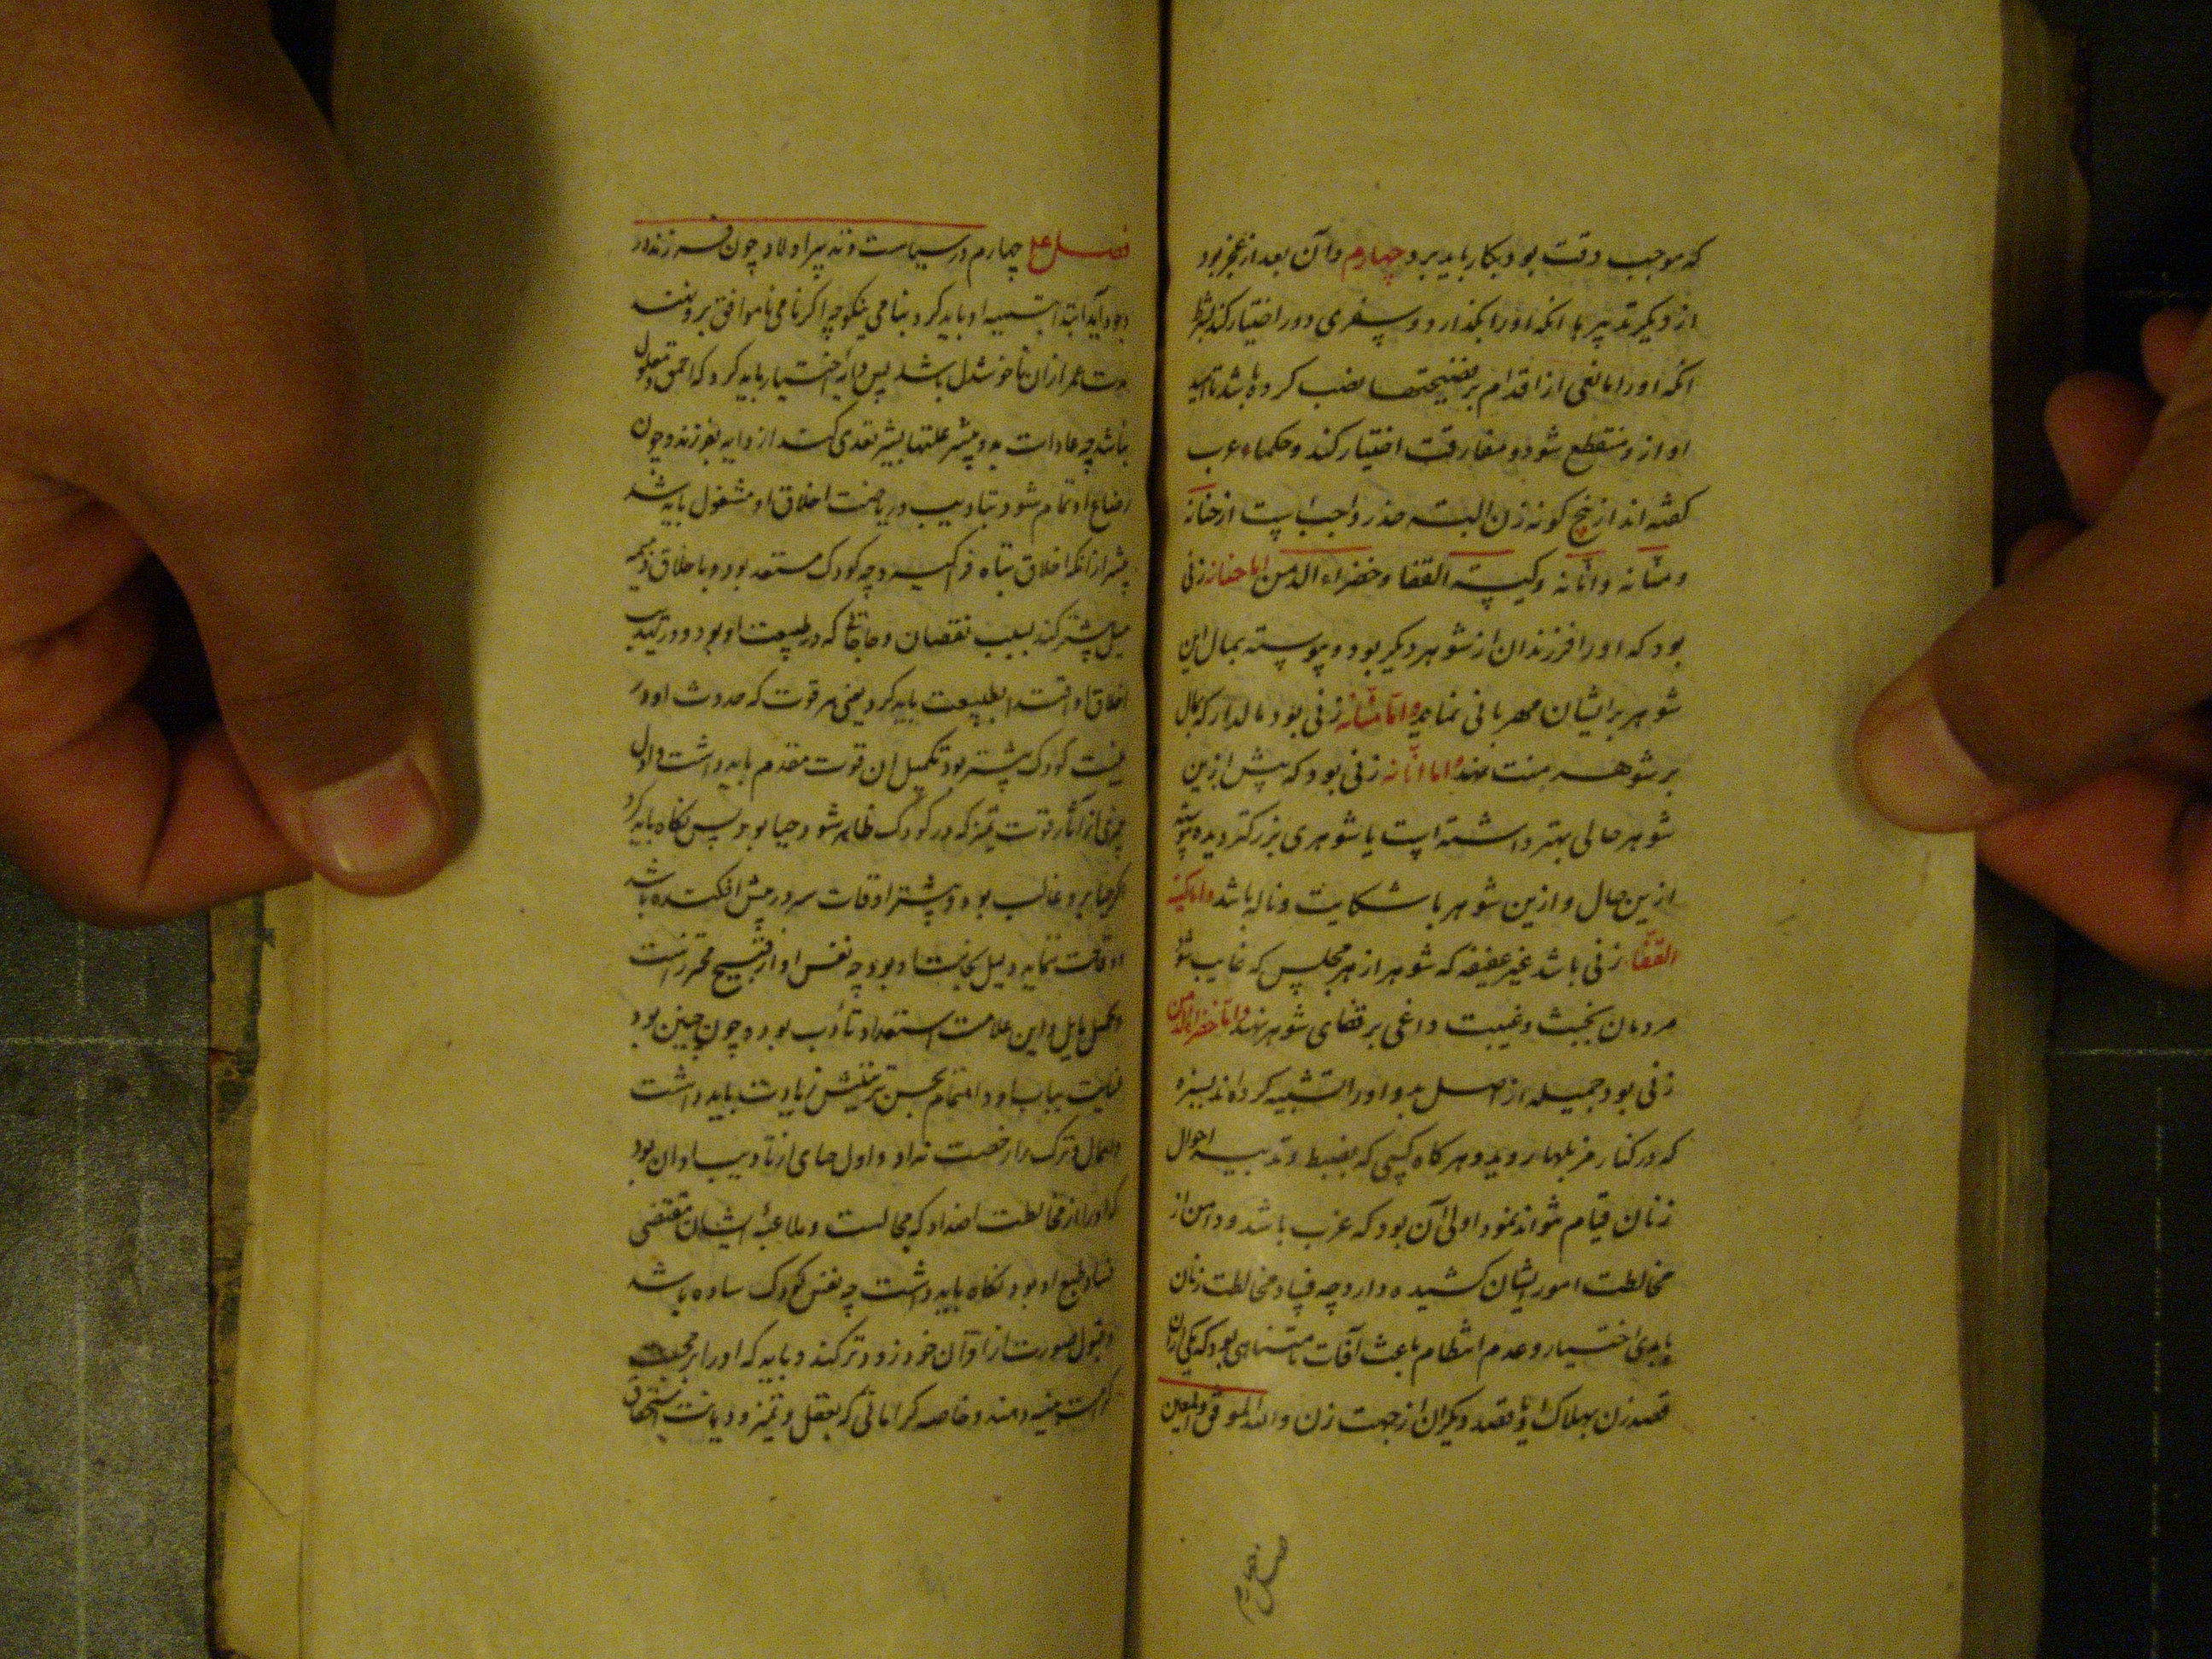 که موجب وقت بود بکار باید برد چهارم و آن بعد از عجز بود
از دیگر تدبیرها انکه او را بگذارد و سفری دور اختیار کند بشرط
انکه او را مانعی از اقدام بر فضیحتها نصب کرده باشد تا امید
او از و منقطع شود و مفارقت اختیار کند و حکماء عرب
گفته اند از پنج کونه زن البته حذر واجبست از حنانه
و منانه و انانه و کیة القفا و خضراء الدمن اما حنانه زنی
بود که او را فرزندان از شوهر دیگر بود و پیوسته بمال این
شوهر بر ایشان مهربانی نماید و اما منانه زنی بود مالدار که بمال
بر شوهر منت نهد و اما انانه زنی بود که پیش ازین
شوهر حالی بهتر داشته است یا شوهری بزرکتر دیده پیوسته
ازین حال و ازین شوهر با شکایت و ناله باشد و اما کیة
القفا زنی باشد غیر عفیفه که شوهر از هر مجلس که غایب شود
مردمان بخبث و غیبت داغی بر قفای شوهر نهند و اما خضراء الدمن
زنی بود جمیله از اصل بد و او را تشبیه کرده اند بسبزه
که در کنار مزبلها روید و هر کاه کسی که بضبط و تدبیر احوال
زنان قیام نتواند نمود اولی آن بود که عزب باشد و دامن از
مخالطت امور ایشان کشیده دارد چه فساد مخالطت زنان
با بدی اختیار و عدم انتظام باعث آفات نامتناهی بود که یکی ازان
قصد زن بهلاک او یا قصد دیگران از جهت زن والله الموفق والمعین
فصل چهارم
فصل چهارم در سیاست و تدبیر اولاد چون فرزند در
وجود آید ابتدا بتسمیه او باید کرد بنامی نیکو چه اکر نامی ناموافق برو نهند
مدت عمر ازان ناخوشدل باشد پس دایه اختیار باید کرد که احمق و معلول
نباشد چه عادات بد و بیشتر علتها بشیر تعدی کند از دایه بفرزند و چون
رضاع او تمام شود بتادیب و ریاضت اخلاق او مشغول باید شد
پیشتر ازانکه اخلاق تباه فرا گیرد چه کودک مستعد بود و باخلاق ذمیمه
میل بیشتر کند بسبب نقصان و حاجاتی که در طبیعت او بود و در تهذیب
اخلاق او اقتدا بطبیعت باید کرد یعنی هر قوت که حدوث او در
بنیت کودک پیشتر بود تکمیل ان قوت مقدم باید داشت و اول
چیزی از آثار قوت تمیز که در کودک ظاهر شود حیا بود پس نکاه باید کرد
اگر حیا برو غالب بود و بیشتر اوقات سر در پیش افکنده باشد
و وقاحت ننماید دلیل نجابت او بود چه نفس او از قبیح محترزست
و بجمیل مایل و این علامت استعداد تأدب بود و چون چنین بود
عنایت بباب او و اهتمام بحسن تربیتش زیادت باید داشت
و اهمال و ترک را رخصت نداد و اول چیزی از تادیب او ان بود
که او را از مخالطت اضداد که مجالست و ملاعبهٔ ایشان مقتضی
فساد طبع او بود نکاه باید داشت چه نفس کودک ساده باشد
و قبول صورت از اقران خود زودتر کند و باید که او را بر محبت
کرامت تنبیه دهند و خاصه کراماتی که بعقل و تمیز و دیانت استحقاق